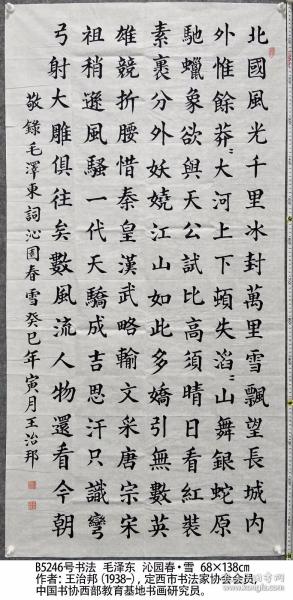 北國風光千里冰封萬里雪飄望長城内
外惟餘莽〻大河上下頓失滔〻山舞銀蛇原
馳蠟象欲與天公試比高須晴日看紅裝
素裹分外妖嬈江山如此多嬌引無數英
雄競折腰惜秦皇漢武略輸文采唐宗宋
祖稍遜風騷一代天驕成吉思汗只識彎
弓射大雕俱往矣數風流人物還看今朝
敬錄毛澤東詞沁園春雪癸巳年寅月王治邦
B5246号书法 毛泽东 沁园春·雪 68×138cm
作者：王治邦（1938-），定西市书法家协会会员，
中国书协西部教育基地书画研究员。